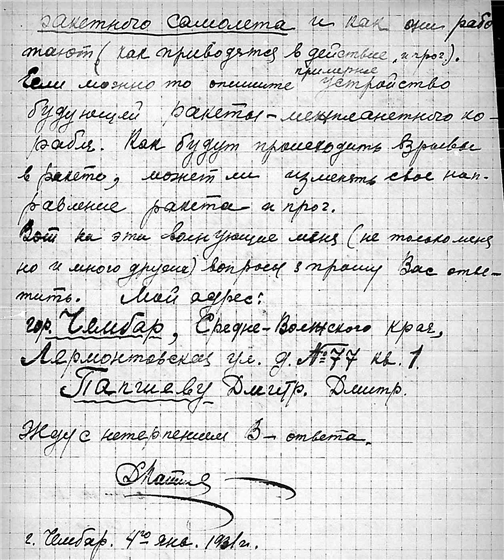 ракетного самолета и как они рабо
тают (как приводятся в действие и проч.).
Если можно то опишите примерное устройство
будующей ракеты – межпланетного ко-
рабля. Как будут происходить взрывы
в ракете, может ли изменять свое нап-
равление ракета и проч.
Вот на эти волнующие меня (не только меня
но и много других) вопросы я прошу Вас отве-
тить. Мой адрес:
гор. Чембар, Средне-Волжского края,
Лермонтовская ул. д. №77 кв. 1.
Дмитр. Дмитр.
Жду с нетерпением В– ответа.
г. Чембар. 4го янв. 1931 г.